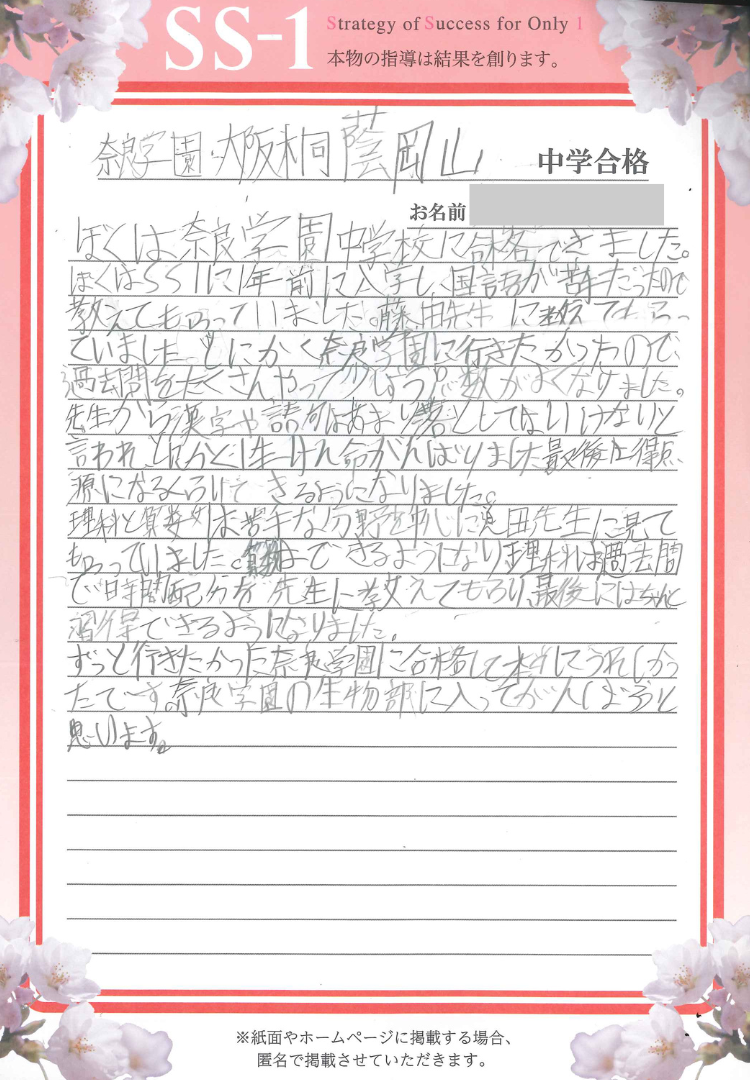 SS-1
Strategy of Success for Only 1
本物の指導は結果を創ります。
奈良学園・大阪桐蔭 岡山 中学合格
お名前
ぼくは奈良学園中学校に合格できました。
ぼくはSS1に1年前に入学し、国語が苦手だったので
教えてもらっていました。藤田先生に教えてもらっ
ていました。とにかく奈良学園に行きたかったので、
過去問をたくさんやって少しずつ点数がよくなりました。
先生から漢字や語句はあまり落としてはいけないと
言われ、とにかく一生けん命がんばりました。最後は得点
源になるくらいできるようになりました。
理科と算数は苦手な分野を中心に 田先生に見て
もらっていました。算数はできるようになり、理科は過去問
で時間配分を先生に教えてもらい、最後にはちゃんと
習得できるようになりました。
ずっと行きたかった奈良学園に合格して本当にうれしかっ
たです。奈良学園の生物部に入ってがんばろうと
思います。
※紙面やホームページに掲載する場合、
匿名で掲載させていただきます。